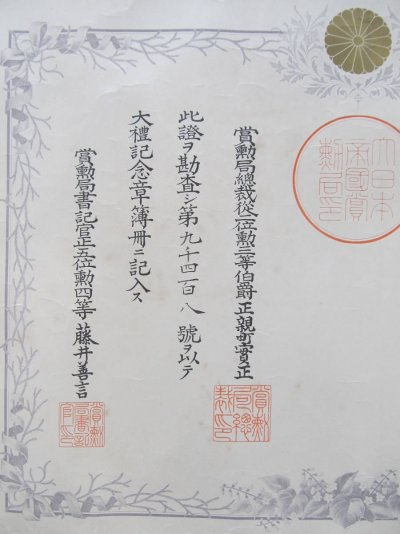 大日本
帝國賞
勲局印
賞勲局總裁從二位勲三等伯爵正親町實正
賞勲
局總
裁印
此證ヲ勘査シ第九千四百八號ヲ以テ
大禮記念章簿冊ニ記入ス
賞勲局書記官正五位勲四等藤井善言
賞勲
局書記
官印